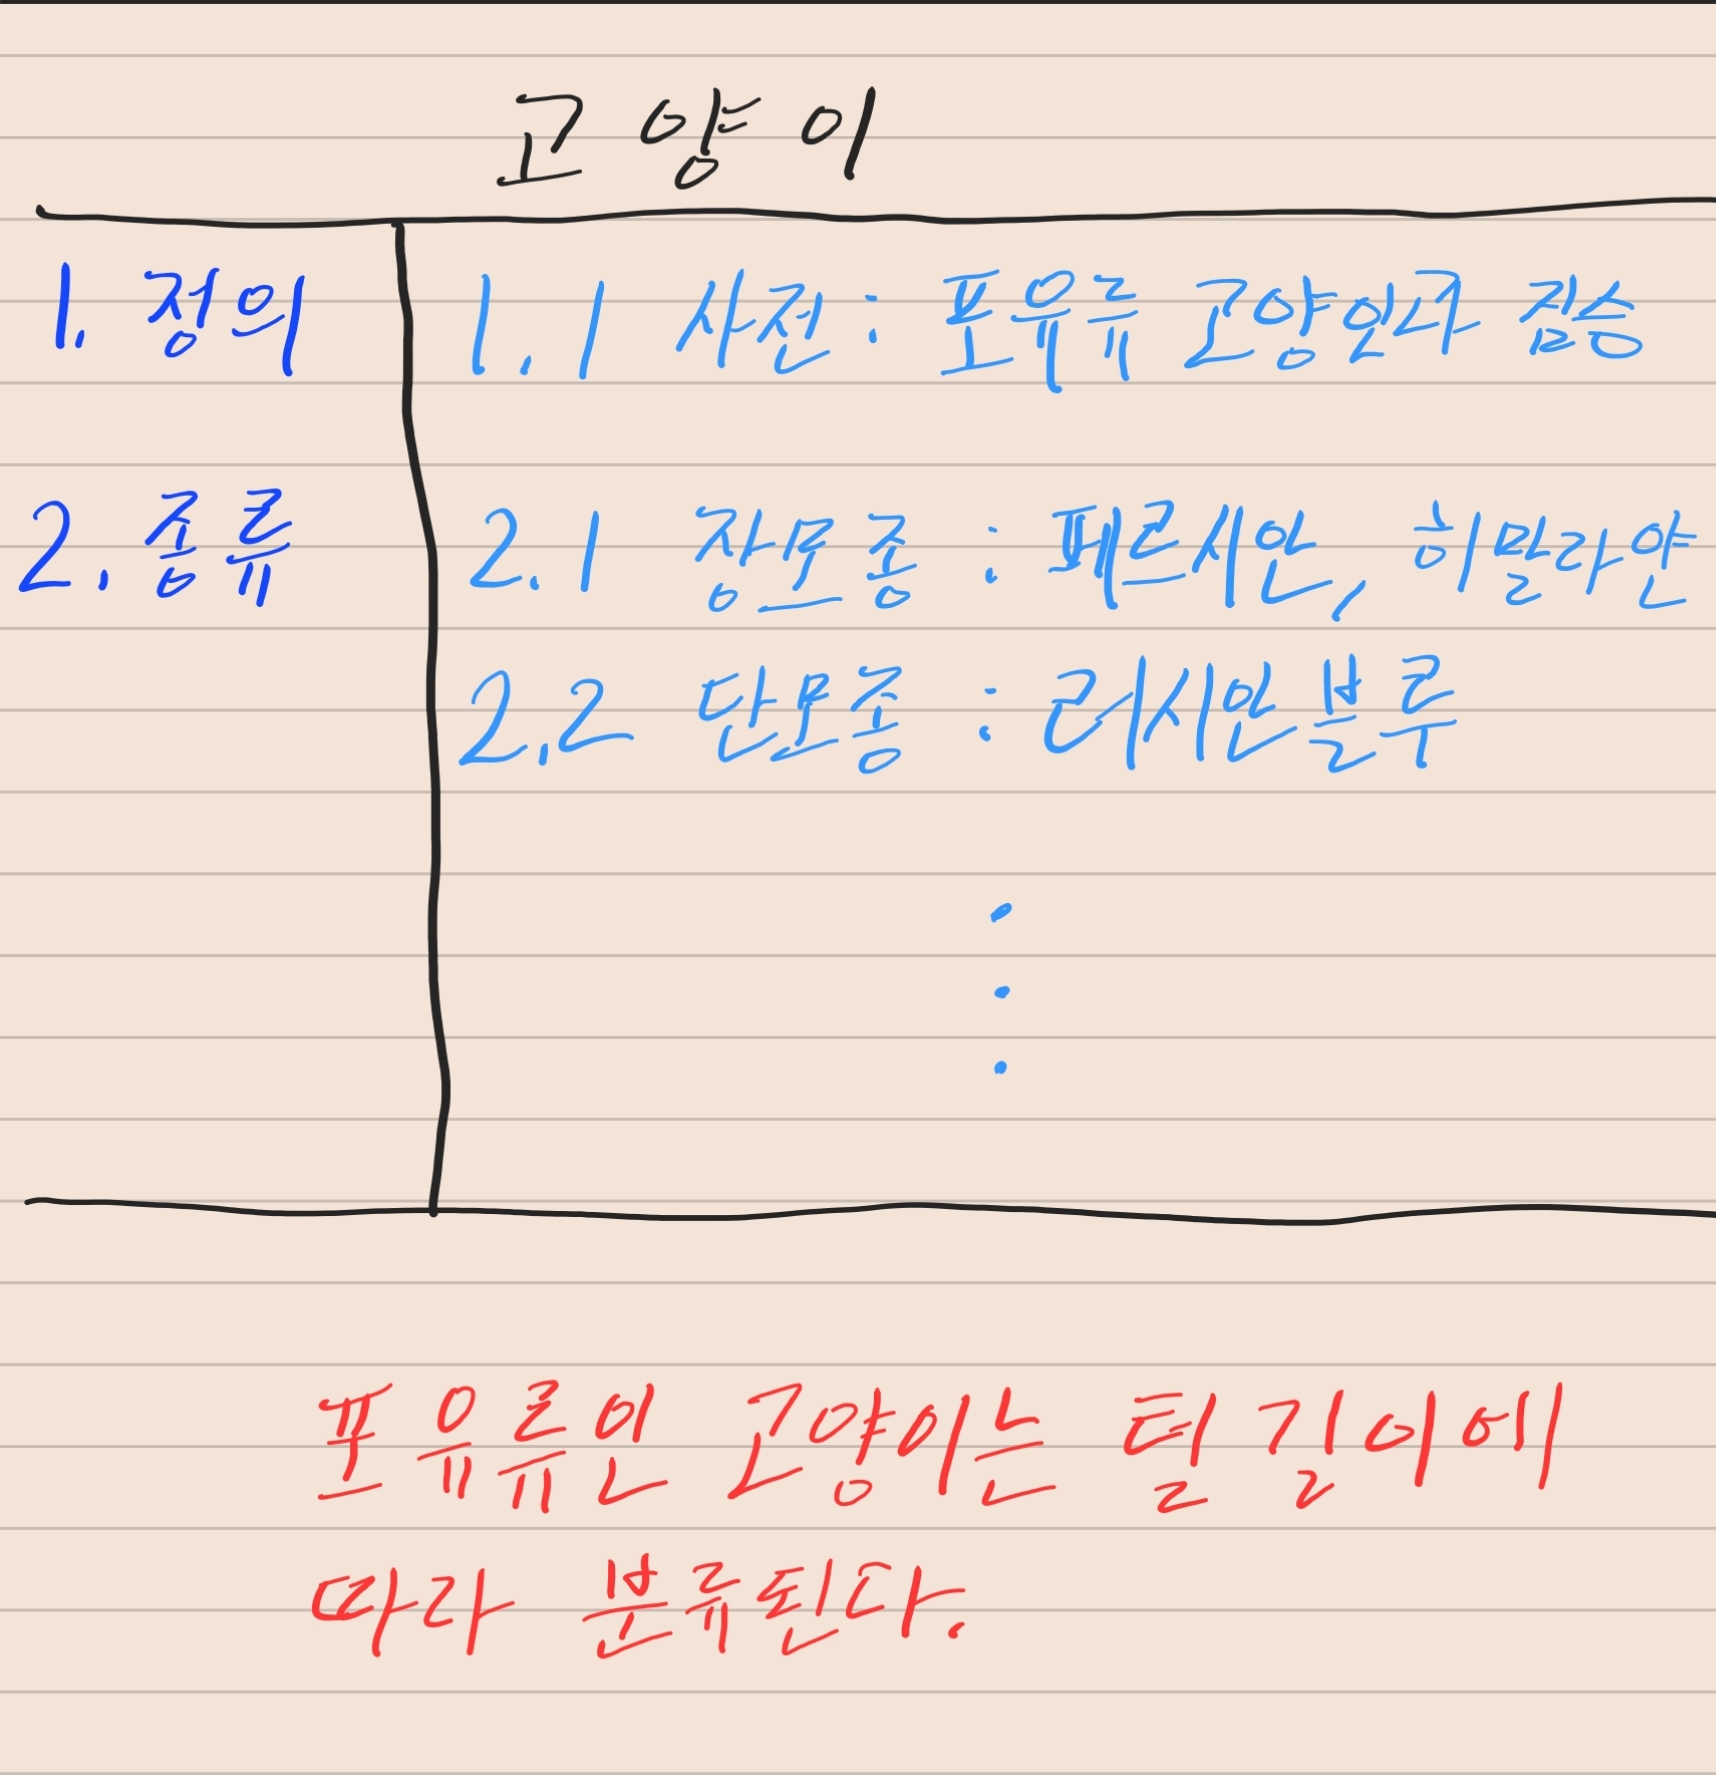 고양이
1. 정의 1.1 사전 : 포유류 고양잇과 짐승
2. 종류 2.1 장모종 : 페르시안, 히말라얀
2.2 단모종 : 러시안블루
포유류인 고양이는 털 길이에
따라 분류된다.